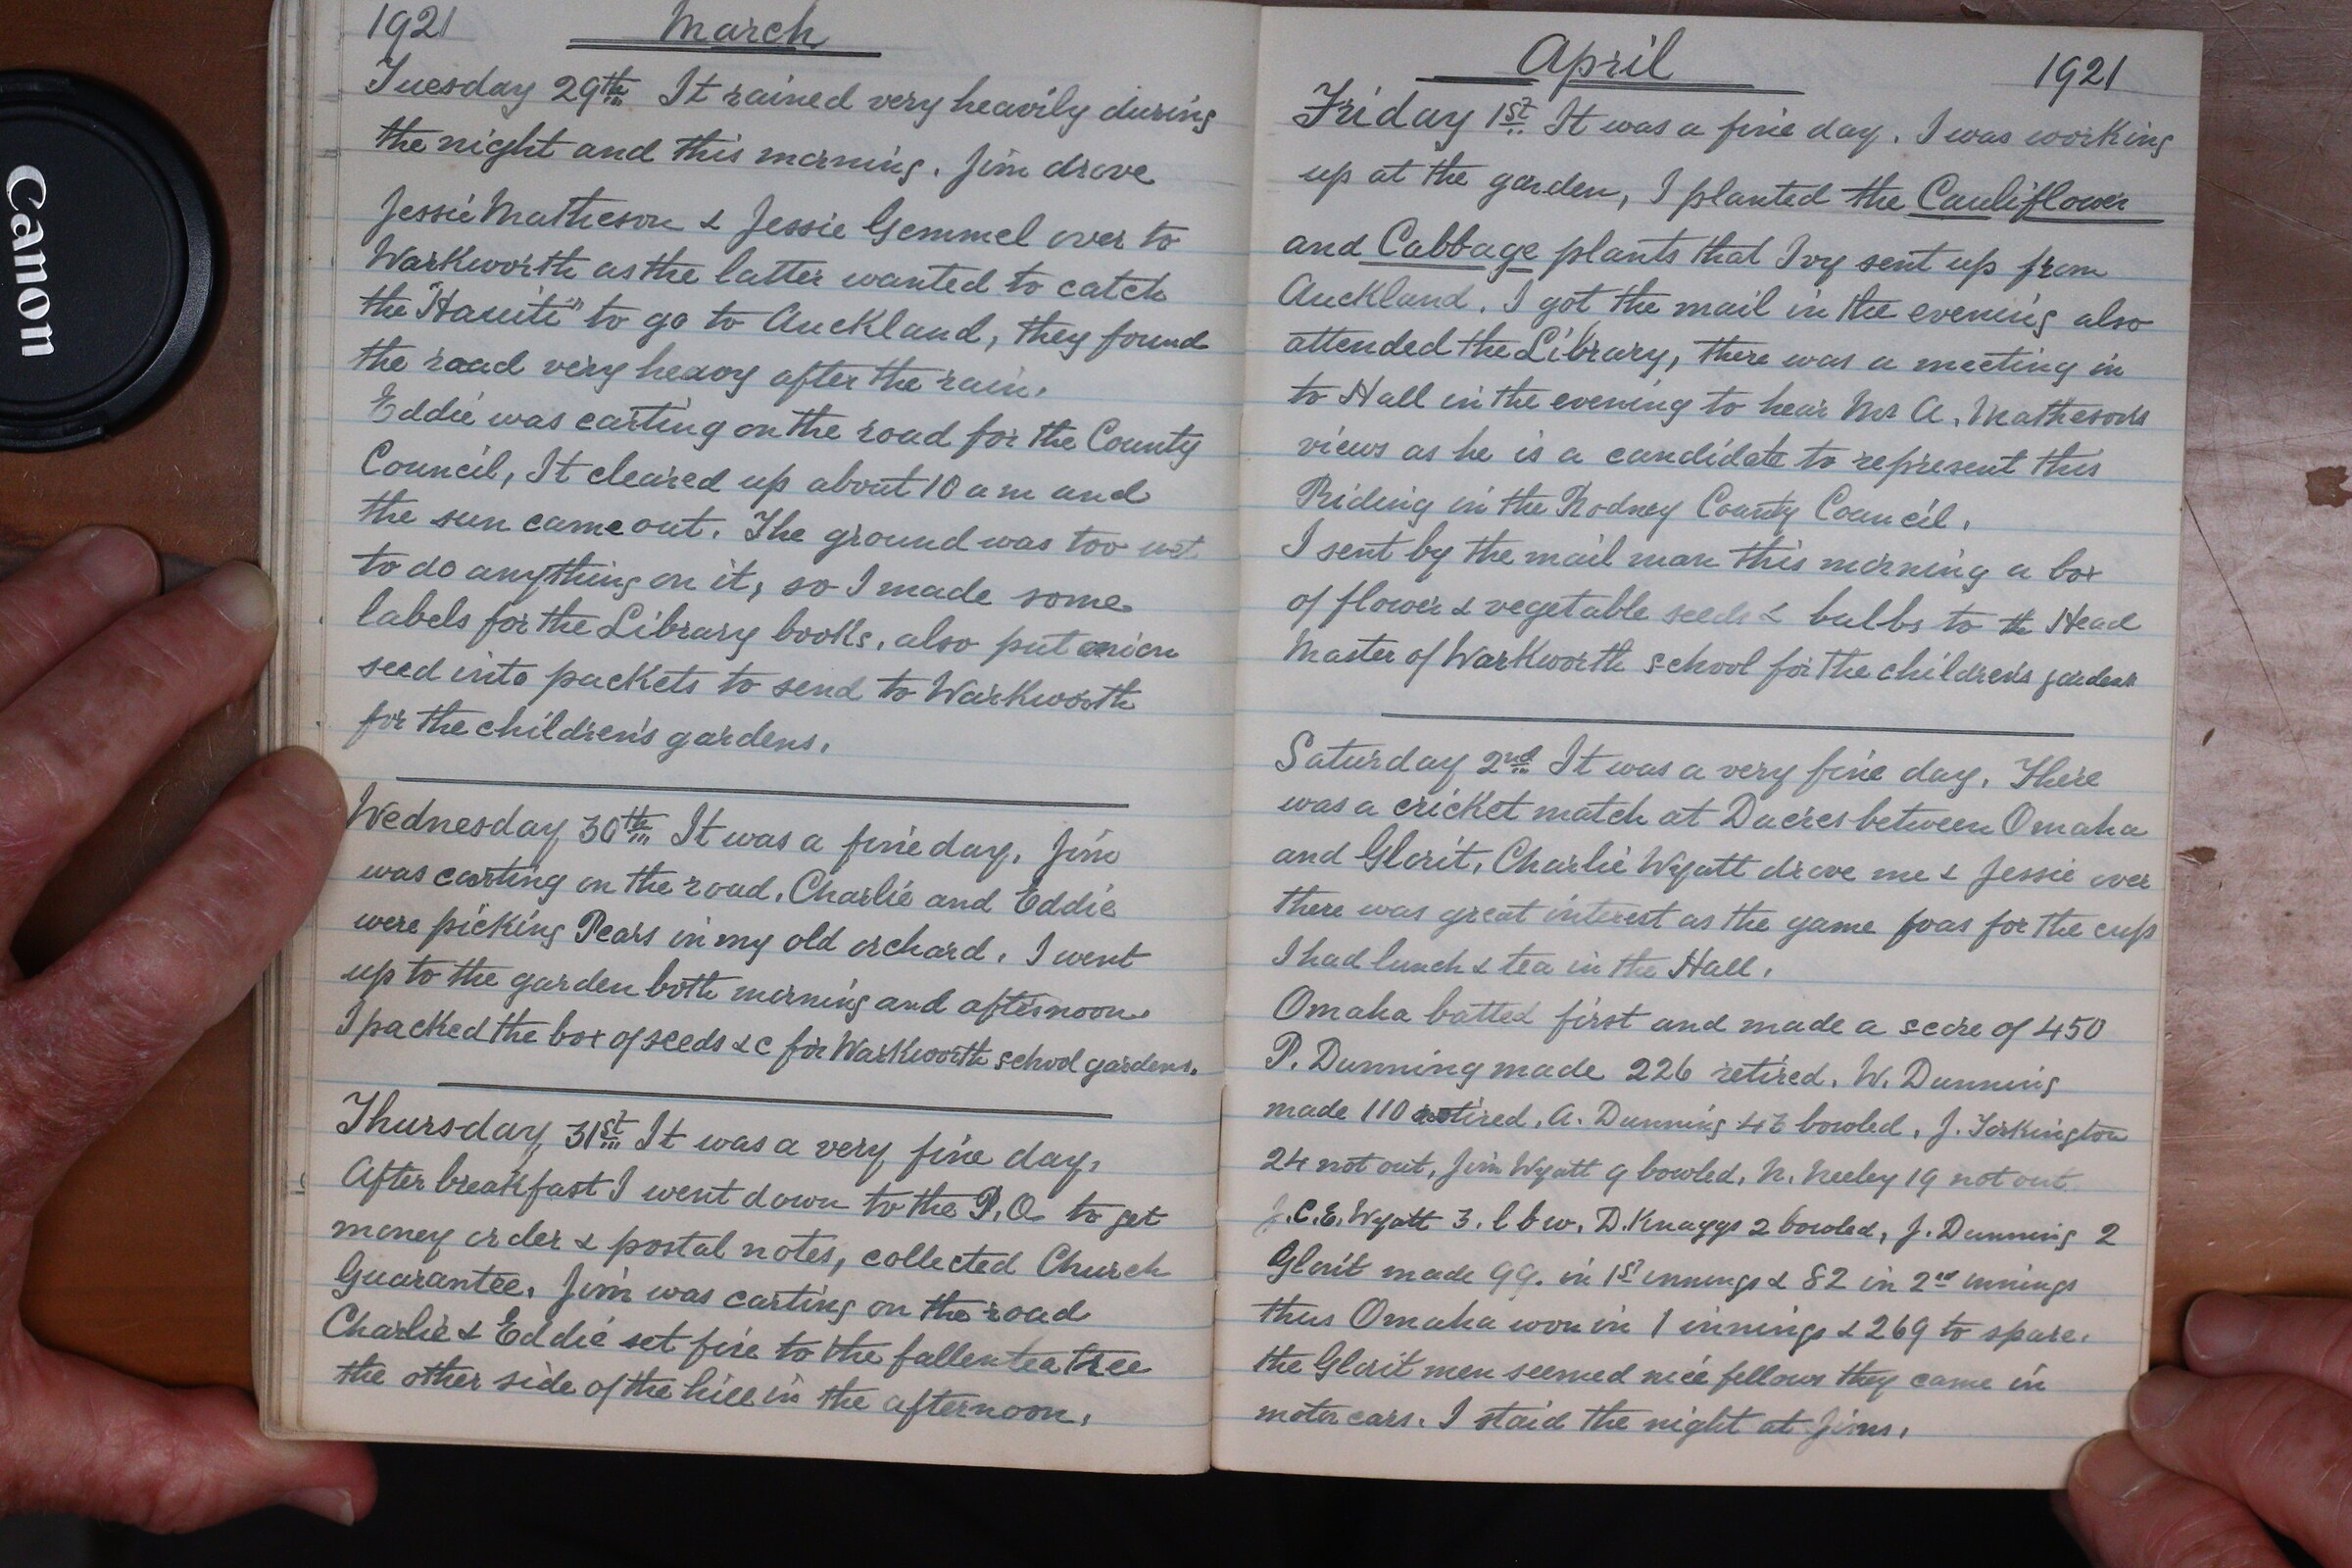 Canon
1921 March
Tuesday 29th It rained very heavily during
the night and this morning. Jim drove
Jessie Matheson & Jessie Gemmel over to
Warkworth as the latter wanted to catch
the "Hauiti" to go to Auckland, they found
the road very heavy after the rain.
Eddie was carting on the road for the County
Council, It cleared up about 10 am and
the sun came out. The ground was too wet
to do anything on it, so I made some
labels for the Library books, also put onion
seed into packets to send to Warkworth
for the children's gardens.
Wednesday 30th It was a fine day. Jim
was carting on the road. Charlie and Eddie
were picking Pears in my old orchard. I went
up to the garden both morning and afternoon.
I packed the box of seeds &c for Warkworth school gardens.
Thursday 31st It was a very fine day.
After breakfast I went down to the P.O. to get
money order & postal notes, collected Church
Guarantee. Jim was carting on the road
Charlie & Eddie set fire to the fallen tea tree
the other side of the hill in the afternoon.
April 1921
Friday 1st It was a fine day. I was working
up at the garden, I planted the Cauliflower
and Cabbage plants that Ivy sent up from
Auckland. I got the mail in the evening also
attended the Library, there was a meeting in
to Hall in the evening to hear Mr A. Matheson's
views as he is a candidate to represent this
Riding in the Rodney County Council.
I sent by the mail man this morning a box
of flower & vegetable seeds & bulbs to the Head
Master of Warkworth school for the children's gardens
Saturday 2nd It was a very fine day. There
was a cricket match at Dacres between Omaha
and Glorit. Charlie Wyatt drove me & Jessie over
there was great interest as the game was for the cup
I had lunch & tea in the Hall.
Omaha batted first and made a score of 450
P. Dunning made 226 retired. W. Dunning
made 110 retired. A. Dunning bowled, J. Torkington
24 not out, Jim Wyatt 9 bowled. N. Neeley 19 not out
J.C.E. Wyatt 3. l b w. D. Knaggs 2 bowled, J. Dunning 2
Glorit made 99. in 1st innings & 82 in 2nd innings
thus Omaha won in 1 innings & 269 to spare.
the Glorit men seemed nice fellows they came in
motor cars. I staid the night at Jims.